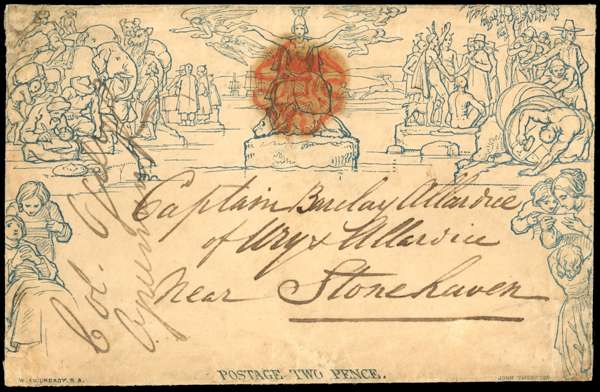 Captain Barclay Allardice
of Ury & Allardice
Near Stonehaven
Col.
POSTAGE TWO PENCE.
JOHN THOMPSON